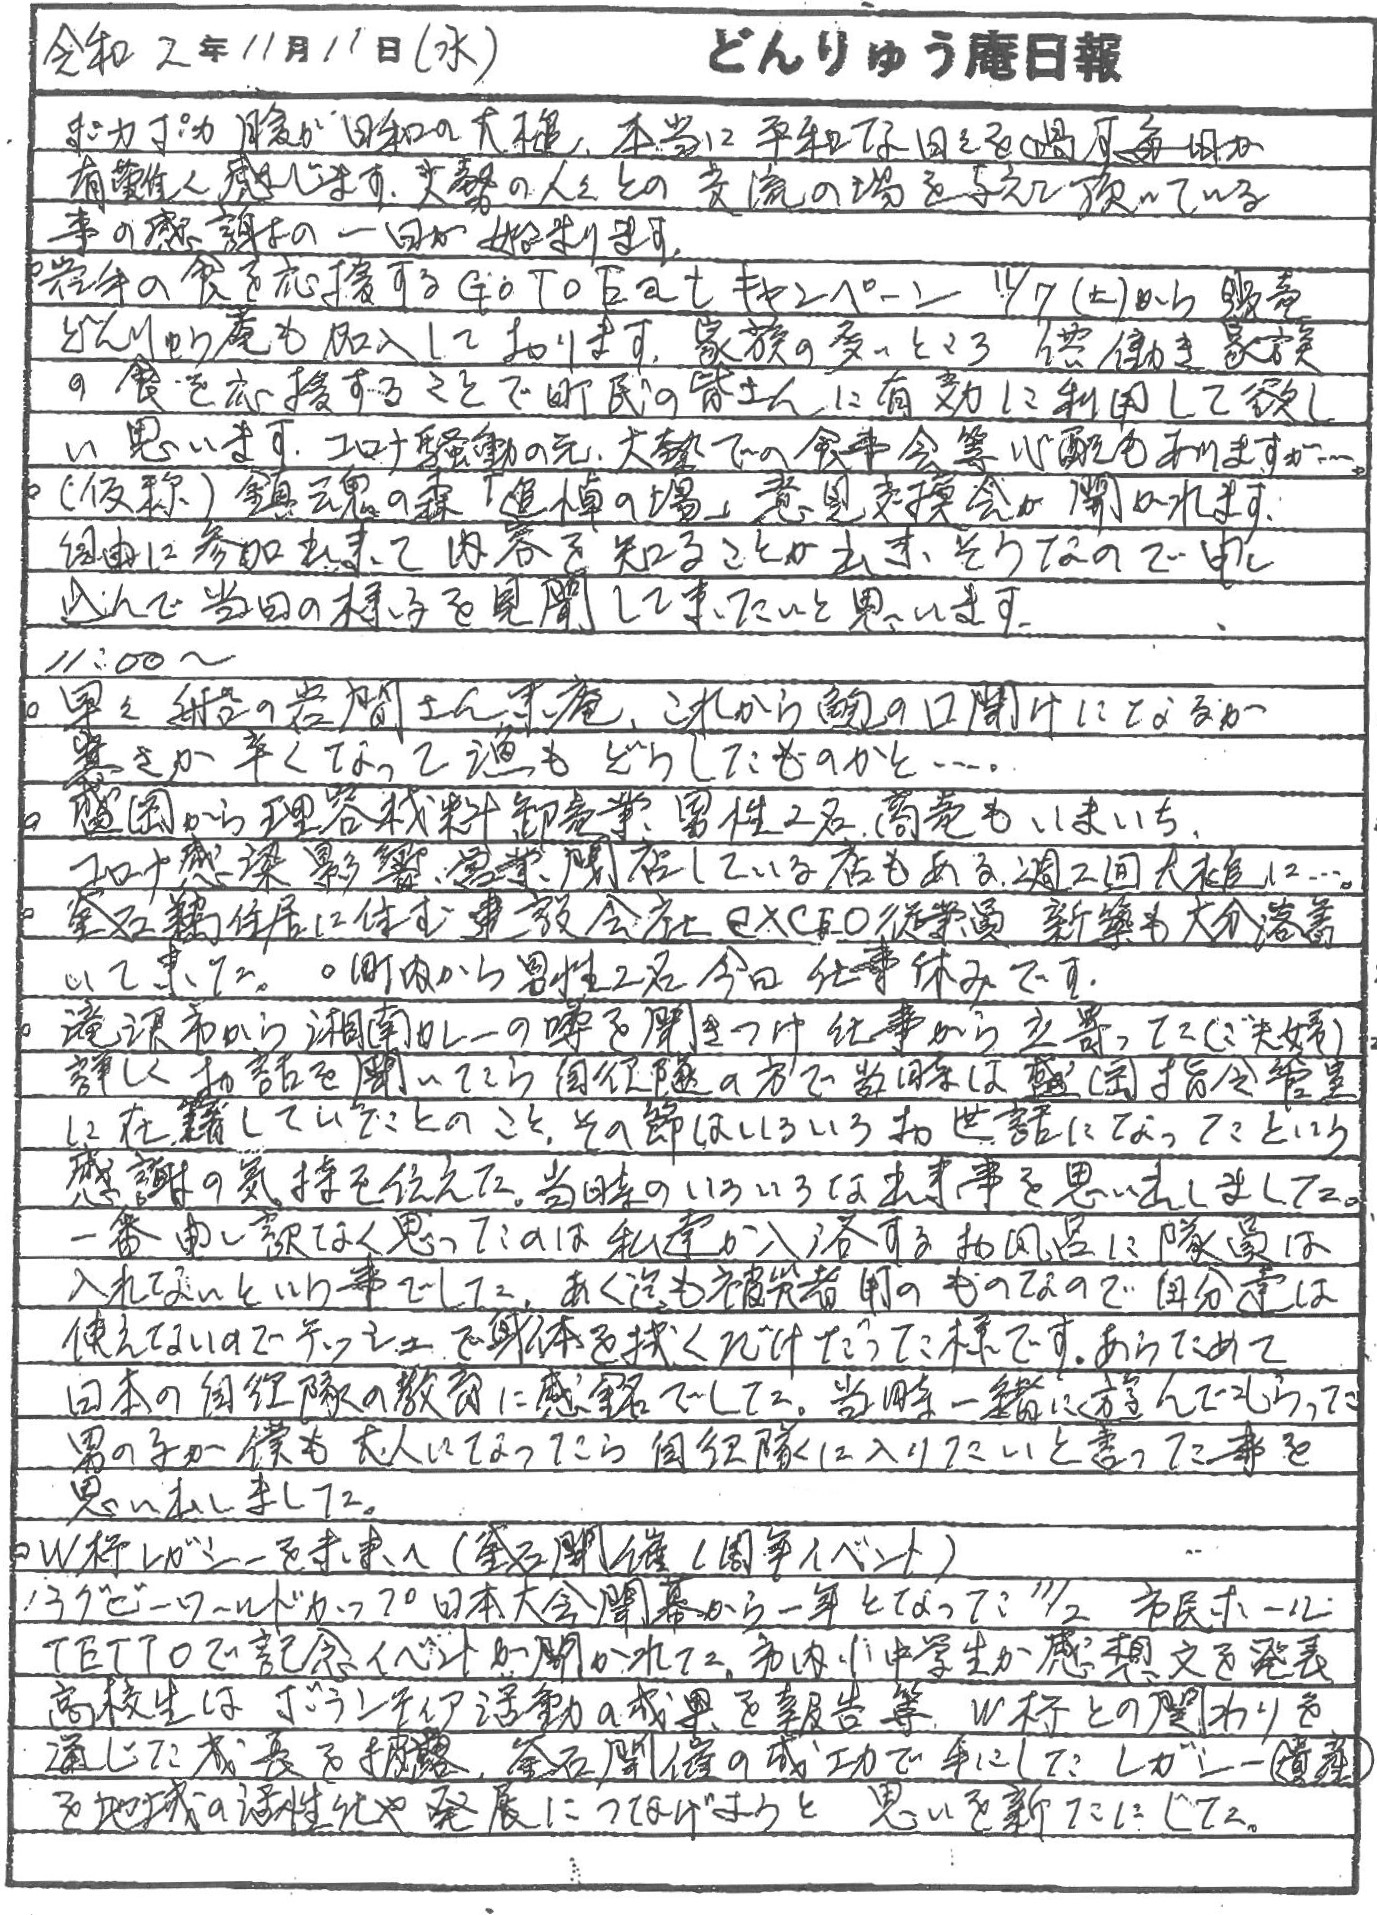 令和2年11月11日(水) どんりゅう庵日報
ポカポカ陽気が日和の大槌、本当に平和な日々を過す毎日が
有難く感じます。大勢の人々との交流の場を与えて頂いている
事の感謝の一日が始まります。
岩手の食を応援するGoToEatキャンペーン 11/7(土)から販売
どんりゅう庵も加入しております。家族の多いところ 共働き家族
の食を応援することで町民の皆さんに有効に利用して欲し
い思います。コロナ騒動の元、大勢での食事会等心配もありますが…。
(仮称)鎮魂の森「追悼の場」意見交換会が開かれます。
自由に参加出来て内容を知ることが出来そうなので申し
込んで当日の様子を見聞して来たいと思います。
11:00～
早々 の岩間さん来庵、これから鮑の口開けになるが
寒さが辛くなって漁もどうしたものかと…。
盛岡から理容材料卸売業 男性2名、商売もいまいち、
コロナ感染影響、営業、閉店している店もある。週2回大槌に…。
釜石鵜住居に住む建設会社exCEO従業員 新築も大分落着
いて来た。 ○町内から男性2名今日仕事休みです。
滝沢市から湘南カレーの噂を聞きつけ仕事がら立寄った(ご夫婦)
詳しくお話を聞いたら自衛隊の方で当時は盛岡指令管里
に在籍していたとのこと。その節はいろいろお世話になったという
感謝の気持を伝えた。当時のいろいろな出来事を思い出しました。
一番申し訳なく思ったのは私達が入浴するお風呂に隊員は
入れないという事でした。あく迄も被災者用のものなので自分達は
使えないのでテッシュで身体を拭くだけだった様です。あらためて
日本の自衛隊の教育に感銘でした。当時一緒に遊んでもらった
男の子が僕も大人になったら自衛隊に入りたいと言った事を
思い出しました。
○W杯レガシーを未来へ(釜石開催1周年イベント)
ラグビーワールドカップ日本大会開幕から一年となった11/2 市民ホール
TETTOで記念イベントが開かれた。市内小中学生が感想文を発表
高校生はボランティア活動の成果を報告等、W杯との関わりを
通じた成長を披露、釜石開催の成功で手にしたレガシー(遺産)
を地域の活性化や発展につなげようと 思いを新たにした。